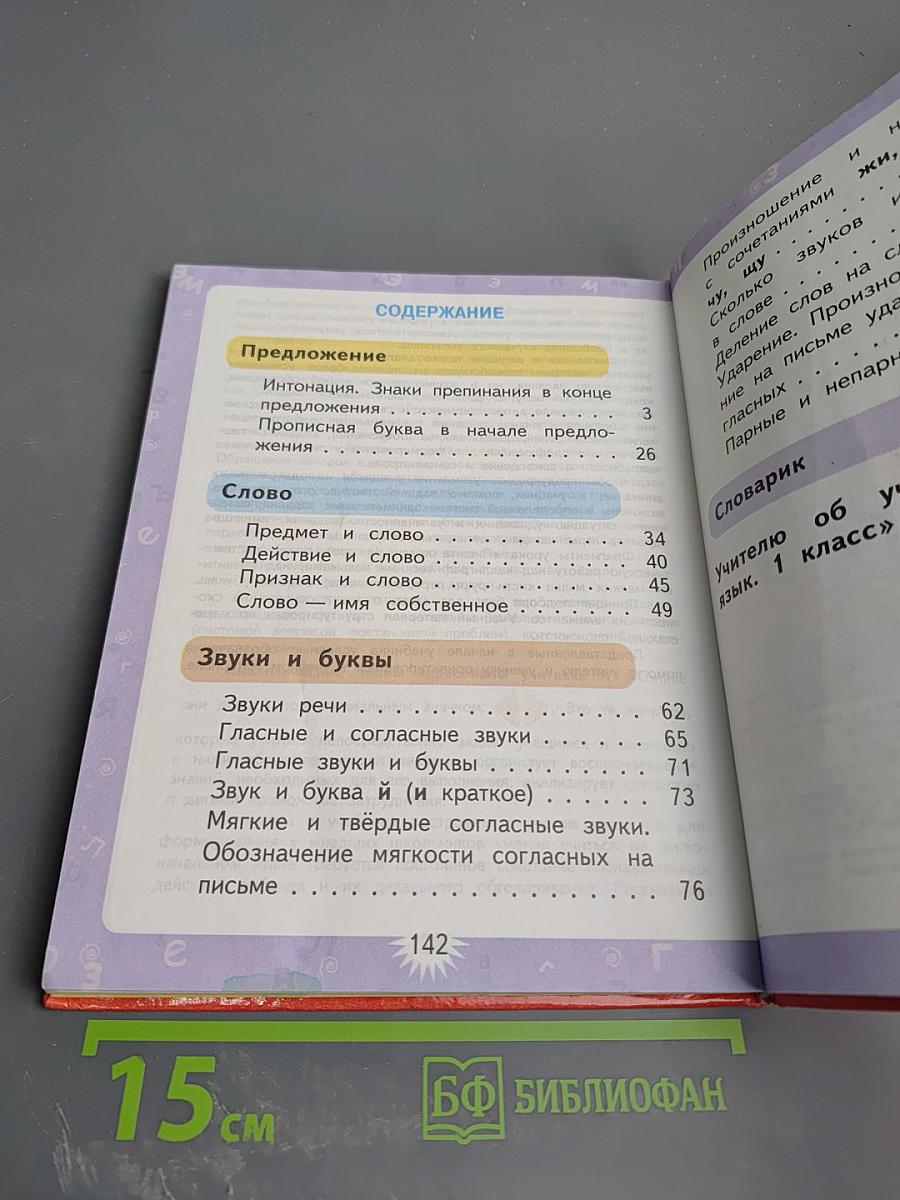 СОДЕРЖАНИЕ
Предложение
Интонация. Знаки препинания в конце
предложения . . . . . . . . . . . . . . 3
Прописная буква в начале предло-
жения . . . . . . . . . . . . . . . . . 26
Слово
Предмет и слово . . . . . . . . . . . 34
Действие и слово . . . . . . . . . . . 40
Признак и слово . . . . . . . . . . . 45
Слово — имя собственное . . . . . . . 49
Звуки и буквы
Звуки речи . . . . . . . . . . . . . . . 62
Гласные и согласные звуки . . . . . . 65
Гласные звуки и буквы . . . . . . . . 71
Звук и буква й (и краткое) . . . . . . 73
Мягкие и твёрдые согласные звуки.
Обозначение мягкости согласных на
письме . . . . . . . . . . . . . . . . . . 76
142
Произношение и
с сочетаниями жи,
чу, щу . . . . . . .
Сколько звуков
в слове . . . . . .
Деление слов на
Ударение.
ние на письме
гласных . . . . . .
Парные и
Словарик
Учителю об
язык. 1 класс»
15 см
БФ БИБЛИОФАН